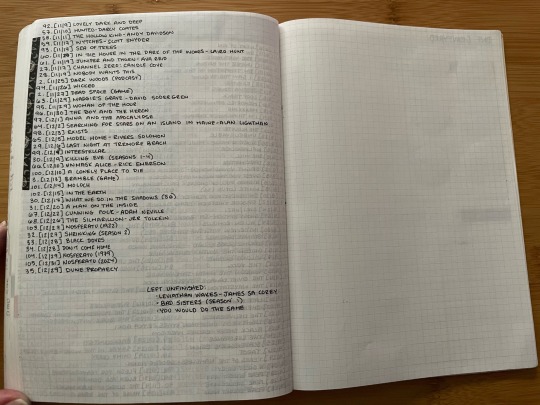 92. [11/9] LOVELY DARK AND DEEP
57. [11/10] HUNTED - DARCY COATES
58. [11/11] THE HOLLOW KIND - ANDY DAVIDSON
59. [11/17] WYTCHES - SCOTT SNYDER
93. [11/17] SEA OF TREES
60. [11/18] IN THE HOUSE IN THE DARK OF THE WOODS - LAIRD HUNT
61. [11/19] JUNIPER AND THORN - AVA REID
27. [11/17] CHANNEL ZERO: CANDLE COVE
28. [11/19] NOBODY WANTS THIS
2. [11/25] DARK WOODS (PODCAST)
94. [11/26] WICKED
2. [11/27] DEAD SPACE (GAME)
63. [11/29] MAGGIE'S GRAVE - DAVID SODERGREN
95. [11/29] WOMAN OF THE HOUR
96. [11/30] THE BOY AND THE HERON
97. [12/1] ANNA AND THE APOCALYPSE
64. [12/2] SEARCHING FOR STARS ON AN ISLAND IN MAINE - ALAN LIGHTMAN
98. [12/3] EXISTS
65. [12/5] MODEL HOME - RIVERS SOLOMON
29. [12/6] LAST NIGHT AT TREMORE BEACH
99. [12/8] INTERSTELLAR
30. [12/9] KILLING EVE (SEASONS 1-4)
66. [12/12] UNMASK ALICE - RICK EMERSON
100. [12/12] A LONELY PLACE TO DIE
3. [12/13] BRAMBLE (GAME)
101. [12/14] MOLOCH
102. [12/15] IN THE EARTH
30. [12/19] WHAT WE DO IN THE SHADOWS (S6)
31. [12/20] A MAN ON THE INSIDE
67. [12/22] CUNNING FOLK - ADAM NEVILLE
68. [12/26] THE SILMARILLION - JRR TOLKEIN
103. [12/27] NOSFERATU (1922)
32. [12/27] SHRINKING (SEASON 2)
33. [12/28] BLACK DOVES
34. [12/28] DON'T COME HOME
104. [12/29] NOSFERATU (1979)
105. [12/31] NOSFERATU (2024)
35. [12/29] DUNE: PROPHECY
LEFT UNFINISHED:
· LEVIATHAN WAKES - JAMES SA COREY
· BAD SISTERS (SEASON 2)
· YOU WOULD DO THE SAME